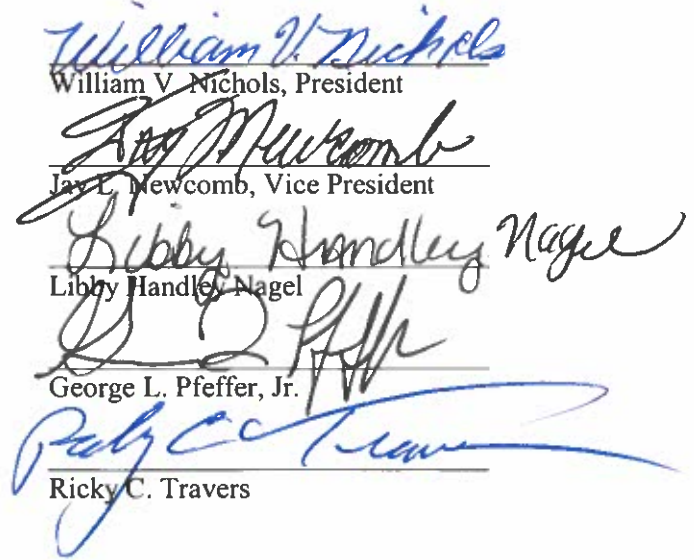 William V. Nichols
William V. Nichols, President
Jay L Newcomb
Jay L. Newcomb, Vice President
Libby Handley Nagel
Libby Handley Nagel
George L. Pfeffer, Jr.
Ricky C. Travers
Ricky C. Travers